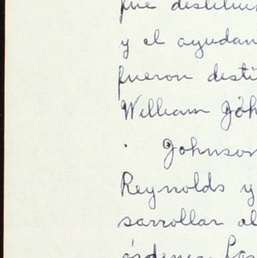 fue
y el ayudan
fueron desti
William Joh
Johnson
Reynolds y
sarrollar al
órdenes. Los